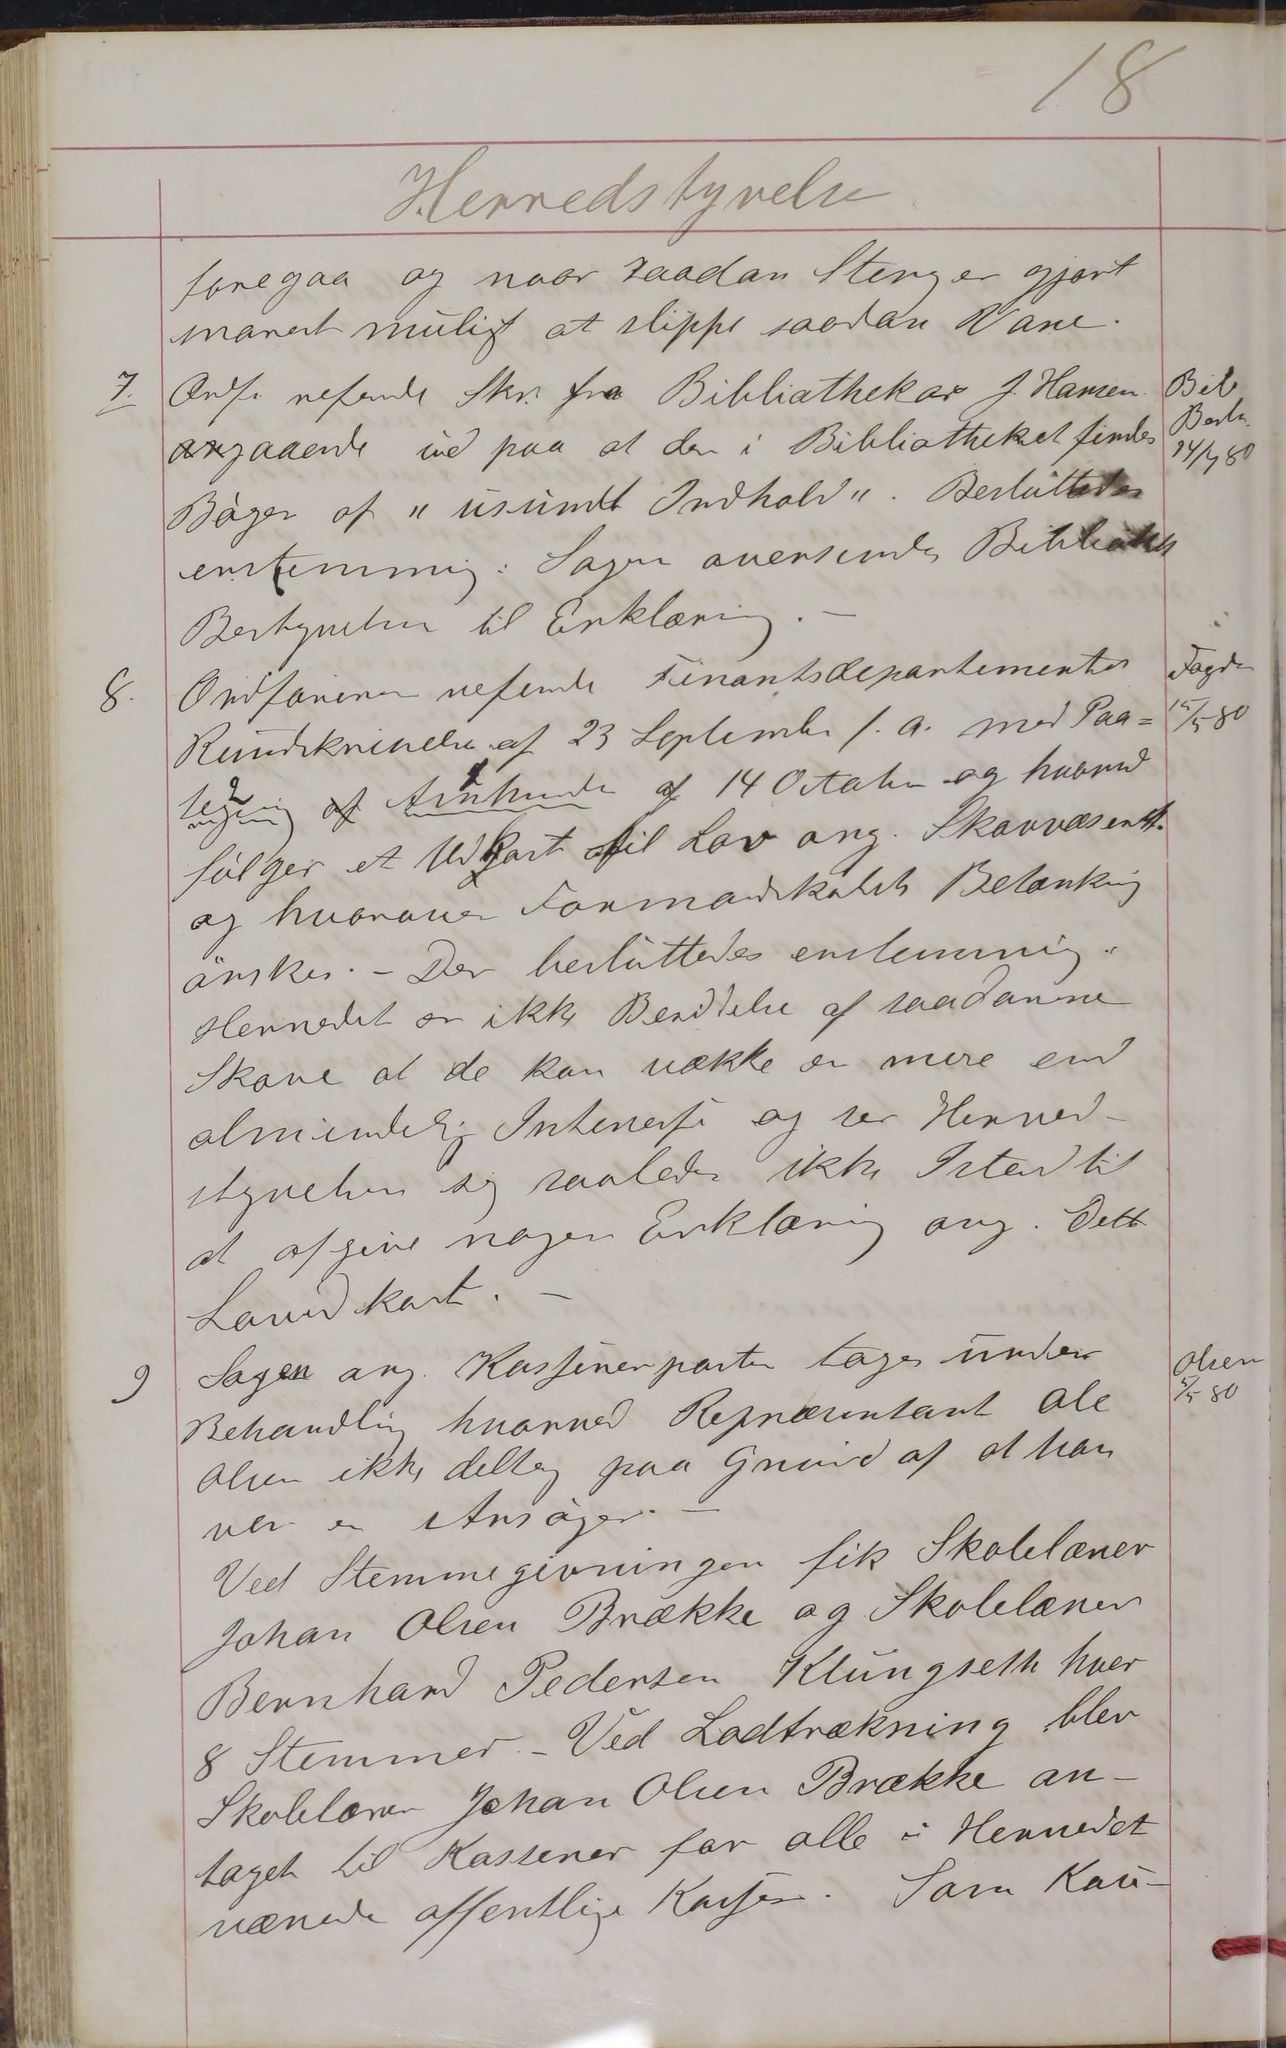 18
Herredstyrelse
foregaa og naar saadan Steng er gjort
snarest muligt at slippe saadan Vare.
7. Ordf. referede Skr. fra Bibliothekar J. Hansen
Bib
angaaende ud paa at der i Bibliotheket findes
Besty.
14/4 80
Bøger af "usundt Indhold". Besluttedes
enstemmig: Sagen oversendes Bibliotheks
Bestyrelsen til Erklæring. —
8. Ordføreren referede Finantsdepartementes
Fogden
Rundskrivelse af 23 September f. a. med Paa=
15/5 80
tegning af Amtmanden af 14 October og hvorved
følger et Udkast til Lov ang. Skovvæsenet
og hvorover Formandskabets Betænkning
ønskes. – Der besluttedes enstemmig:
Herredet er ikke Besiddelse af saadanne
Skove at de kan vække en mere end
almindelig Interesse og ser Herred-
styrelsen sig saaledes ikke Istand til
at afgive nogen Erklæring ang. Dette
Lovudkast. —
9 Sagen ang. Kassererposten toges under
Olsen
5/5 80
Behandling hvorved Repræsentant Ole
Olsen ikke deltog paa Grund af at han
var en Ansøger. —
Ved Stemmegivningen fik Skolelærer
Johan Olsen Brække og Skolelærer
Bernhard Pedersen Klungseth hver
8 Stemmer. – Ved Lodtrækning blev
Skolelærer Johan Olsen Brække an-
taget til Kasserer for alle i Herredet
værende offentlige Kasser. Som Kau-